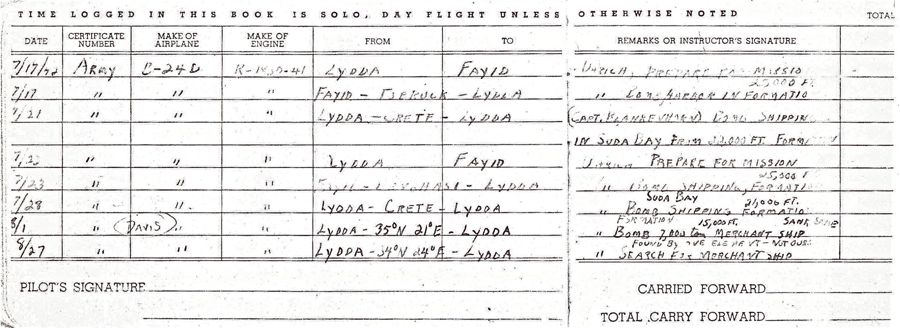 TIME LOGGED IN THIS BOOK IS SOLO, DAY FLIGHT UNLESS OTHERWISE NOTED TOTAL
DATE CERTIFICATE NUMBER MAKE OF AIRPLANE MAKE OF ENGINE FROM TO REMARKS OR INSTRUCTOR'S SIGNATURE
7/17/42 ARMY B-24D LYDDA FAYID PREPARE FOR MISSIO
25,000 FT.
7/17 " " " FAYID - TOBRUCK - LYDDA " BOMB HARBOR IN FORMATIO
7/21 " " " LYDDA - CRETE - LYDDA (CAPT. BLANKENHORN) BOMB SHIPPING
IN SUDA BAY FROM 22,000 FT. FORMATION
" " " LYDDA FAYID PREPARE FOR MISSION
25,000 F
7/23 " " " - LYDDA " BOMB SHIPPING, FORMATIO
SUDA BAY 21,000 FT.
7/28 " " " LYDDA - CRETE - LYDDA " BOMB SHIPPING FORMATIO
FORMATION 15,000 FT. SANK SAME
8/1 " (DAVIS) " " LYDDA - 35°N 21°E - LYDDA " BOMB 7,000 TON MERCHANT SHIP
FOUND BY ELEMENT - NOT OURS
8/27 " " " LYDDA - 34°N 24°E - LYDDA " SEARCH FOR MERCHANT SHIP
PILOT'S SIGNATURE CARRIED FORWARD
TOTAL CARRY FORWARD